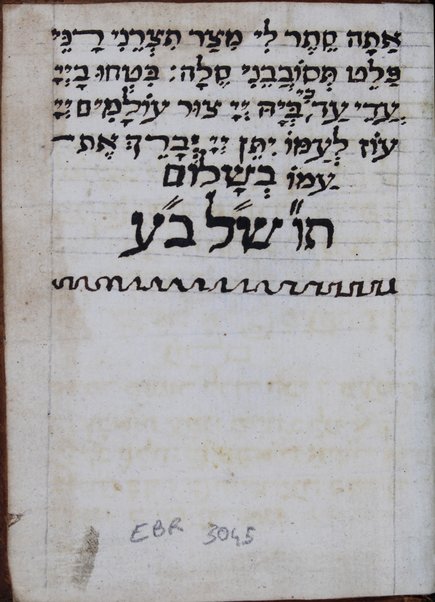 אַתָּה סֵתֶר לִי מִצַּר תִּצְּרֵנִי רָנֵּי
פַלֵּט תְּסוֹבְבֵנִי סֶלָה: בִּטְחוּ בַיְיָ
עֲדֵי עַד כִּי בְּיָהּ יְיָ צוּר עוֹלָמִים יְיָ
עוֹז לְעַמּוֹ יִתֵּן יְיָ יְבָרֵךְ אֶת־
עַמּוֹ בְשָׁלוֹם
תו״ש״ל ב״ע
EBR 3045